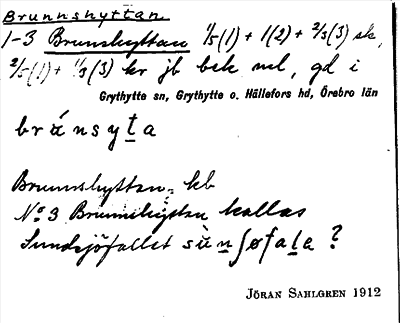 Brunnshyttan
1-3 Brunnshyttan 1/5(1) + 1(2) + 2/3(3) sk,
2/5(1) + 1/3(3) kr jb bek ml, gd i
Grythytte sn, Grythytte o. Hällefors hd, Örebro län
bránsyṯa
Brunnshyttan, kb
No 3 Brunnshyttan kallas
Sundsjöfallet sùṉʃøfaḻa ?
JÖRAN SAHLGREN 1912